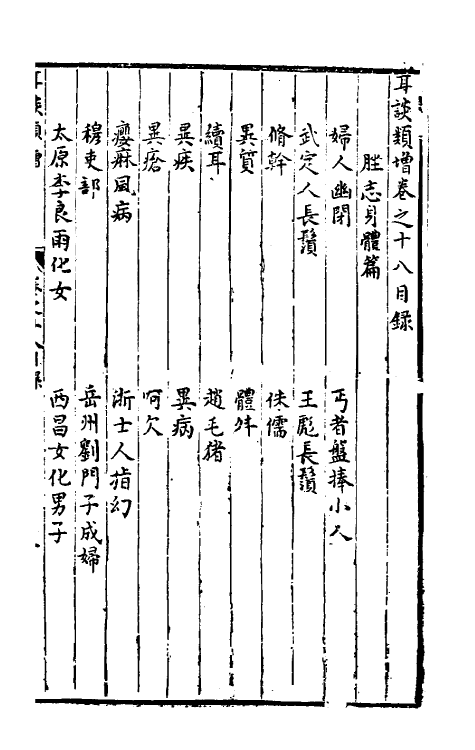 耳談類增卷之十八目錄
脞志身體篇
婦人幽閉　丐者盤捧小人
武定人長鬚　王彪長鬚
脩幹　侏儒
異質　體舛
續耳　趙毛猪
異疾　異病
異瘡　呵欠
癭麻風病　浙士人指幻
穆吏部　岳州劉門子成婦
太原李良雨化女　西昌女化男子
耳談類增